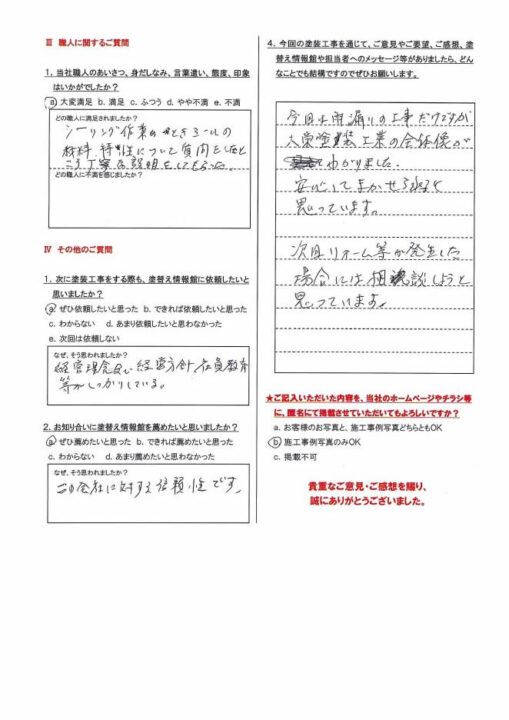 Ⅲ 職人に関するご質問
1. 当社職人のあいさつ、身だしなみ、言葉遣い、態度、印象
はいかがでしたか?
a. 大変満足 b. 満足 c. ふつう d. やや不満 e. 不満
どの職人に満足されましたか?
シーリング作業のときシールの
材料 特性について質問をしたと
ころ丁寧な説明をしてもらった。
どの職人に不満を感じましたか?
Ⅳ その他のご質問
1. 次に塗装工事をする際も、塗替え情報館に依頼したいと
思いましたか?
a. ぜひ依頼したいと思った b. できれば依頼したいと思った
c. わからない d. あまり依頼したいと思わなかった
e. 次回は依頼しない
なぜ、そう思われましたか?
経営理念及び経営方針、社員教育
等がしっかりしている。
2. お知り合いに塗替え情報館を薦めたいと思いましたか?
a. ぜひ薦めたいと思った b. できれば薦めたいと思った
c. わからない d. あまり薦めたいと思わなかった
なぜ、そう思われましたか?
この会社に対する信頼性です。
4. 今回の塗装工事を通じて、ご意見やご要望、ご感想、塗
替え情報館や担当者へのメッセージ等がありましたら、どん
なことでも結構ですのでぜひお願いします。
今回は雨漏りの工事だけですが
大栄塗装工業の全体像が
わかりました。
安心してまかせられると
思っています。
次回リフォーム等が発生した
場合には相談しようと
思っています。
★ご記入いただいた内容を、当社のホームページやチラシ等
に、匿名にて掲載させていただいてもよろしいですか?
a. お客様のお写真と、施工事例写真どちらともOK
b. 施工事例写真のみOK
c. 掲載不可
貴重なご意見・ご感想を賜り、
誠にありがとうございました。